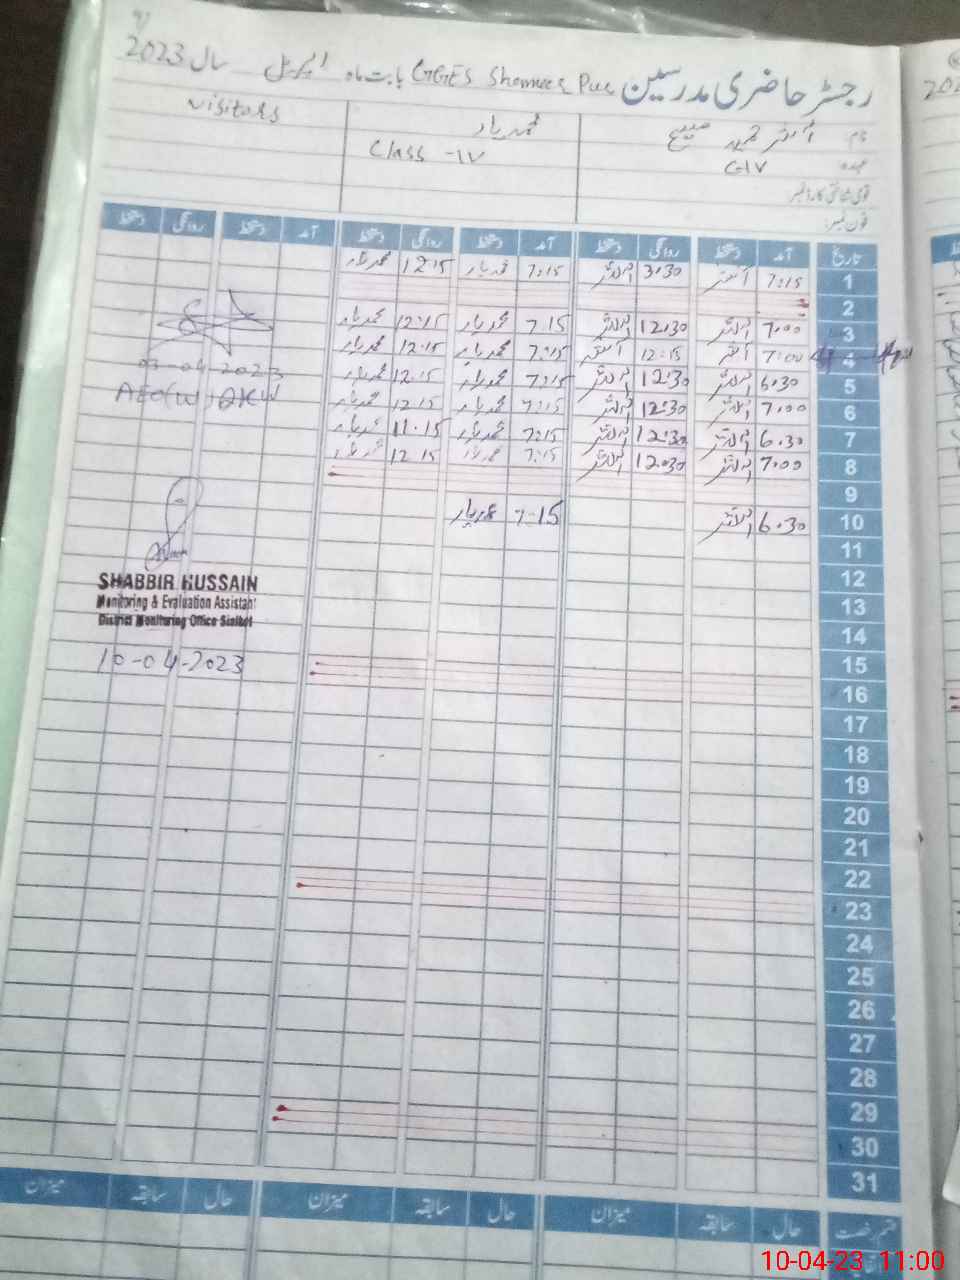 رجسٹر حاضری مدرسین GGES Shamees Pur بابت ماہ اپریل سال 2023
نام
محمد یار
Visitors
عہدہ GIV
Class -IV
قومی شناختی کارڈ نمبر
فون نمبر:
تاریخ آمد دستخط روانگی دستخط آمد دستخط روانگی دستخط آمد دستخط روانگی دستخط
1 7:15 3:30 7:15 محمد یار 12:15 محمد یار
2
3 7:00 12:30 7:15 محمد یار 12:15 محمد یار
4 7:00 12:15 7:15 محمد یار 12:15 محمد یار
5 6:30 12:30 7:15 محمد یار 12:15 محمد یار
6 7:00 12:30 7:15 محمد یار 12:15 محمد یار
7 6:30 12:30 7:15 محمد یار 11:15 محمد یار
8 7:00 12:30 7:15 محمد یار 12:15 محمد یار
9
10 6:30 7:15 محمد یار
11
12
13
14
15
16
17
18
19
20
21
22
23
24
25
26
27
28
29
30
31
03-04-2023
AEO(W)
SHABBIR HUSSAIN
Monitoring & Evaluation Assistant
District Monitoring Office Sialkot
10-04-2023
قسم رخصت حال سابقہ میزان حال سابقہ میزان حال سابقہ میزان
10-04-23 11:00